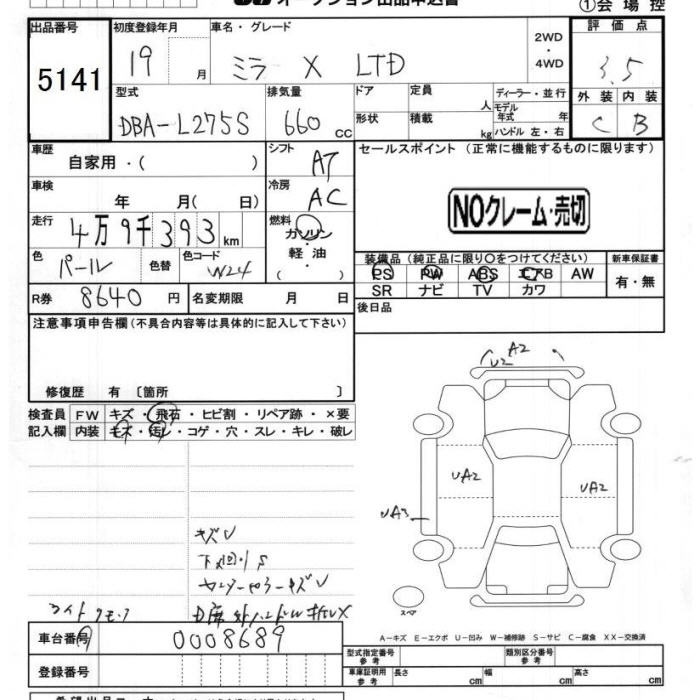 オークション出品申込書
①会場控
出品番号 初度登録年月 車名・グレード 2WD・4WD 評価点
5141 19 月 ミラ X LTD 3.5
型式 排気量 ドア 定員 人 ディーラー・並行 外装 内装
DBA-L275S 660 cc 形状 積載 kg モデル年式 年 ハンドル 左・右 C B
車歴 自家用・( ) シフト AT セールスポイント (正常に機能するものに限ります)
車検 年 月( 日) 冷房 AC NOクレーム・売切
走行 4万9千393km 燃料 ガソリン 軽・油 ( )
色 パール 色替 色コード W24
装備品 (純正品に限り〇をつけてください) 新車保証書
PS PW ABS エアB AW 有・無
SR ナビ TV カワ
R券 8640 円 名変期限 月 日 後日品
注意事項申告欄(不具合内容等は具体的に記入して下さい)
修復歴 有 〔箇所 〕
検査員 FW キズ・飛石・ヒビ割・リペア跡・×要
記入欄 内装 キズ・汚レ・コゲ・穴・スレ・キレ・破レ
U2 A2
UA2 UA2
UA3
キズU
下回りS
スペア
A-キズ E-エクボ U-凹み W-補修跡 S-サビ C-腐食 XX-交換済
車台番号 0008689
登録番号
型式指定番号 参考 類別区分番号 参考
車庫証明用 参考 長さ cm 幅 cm 高さ cm